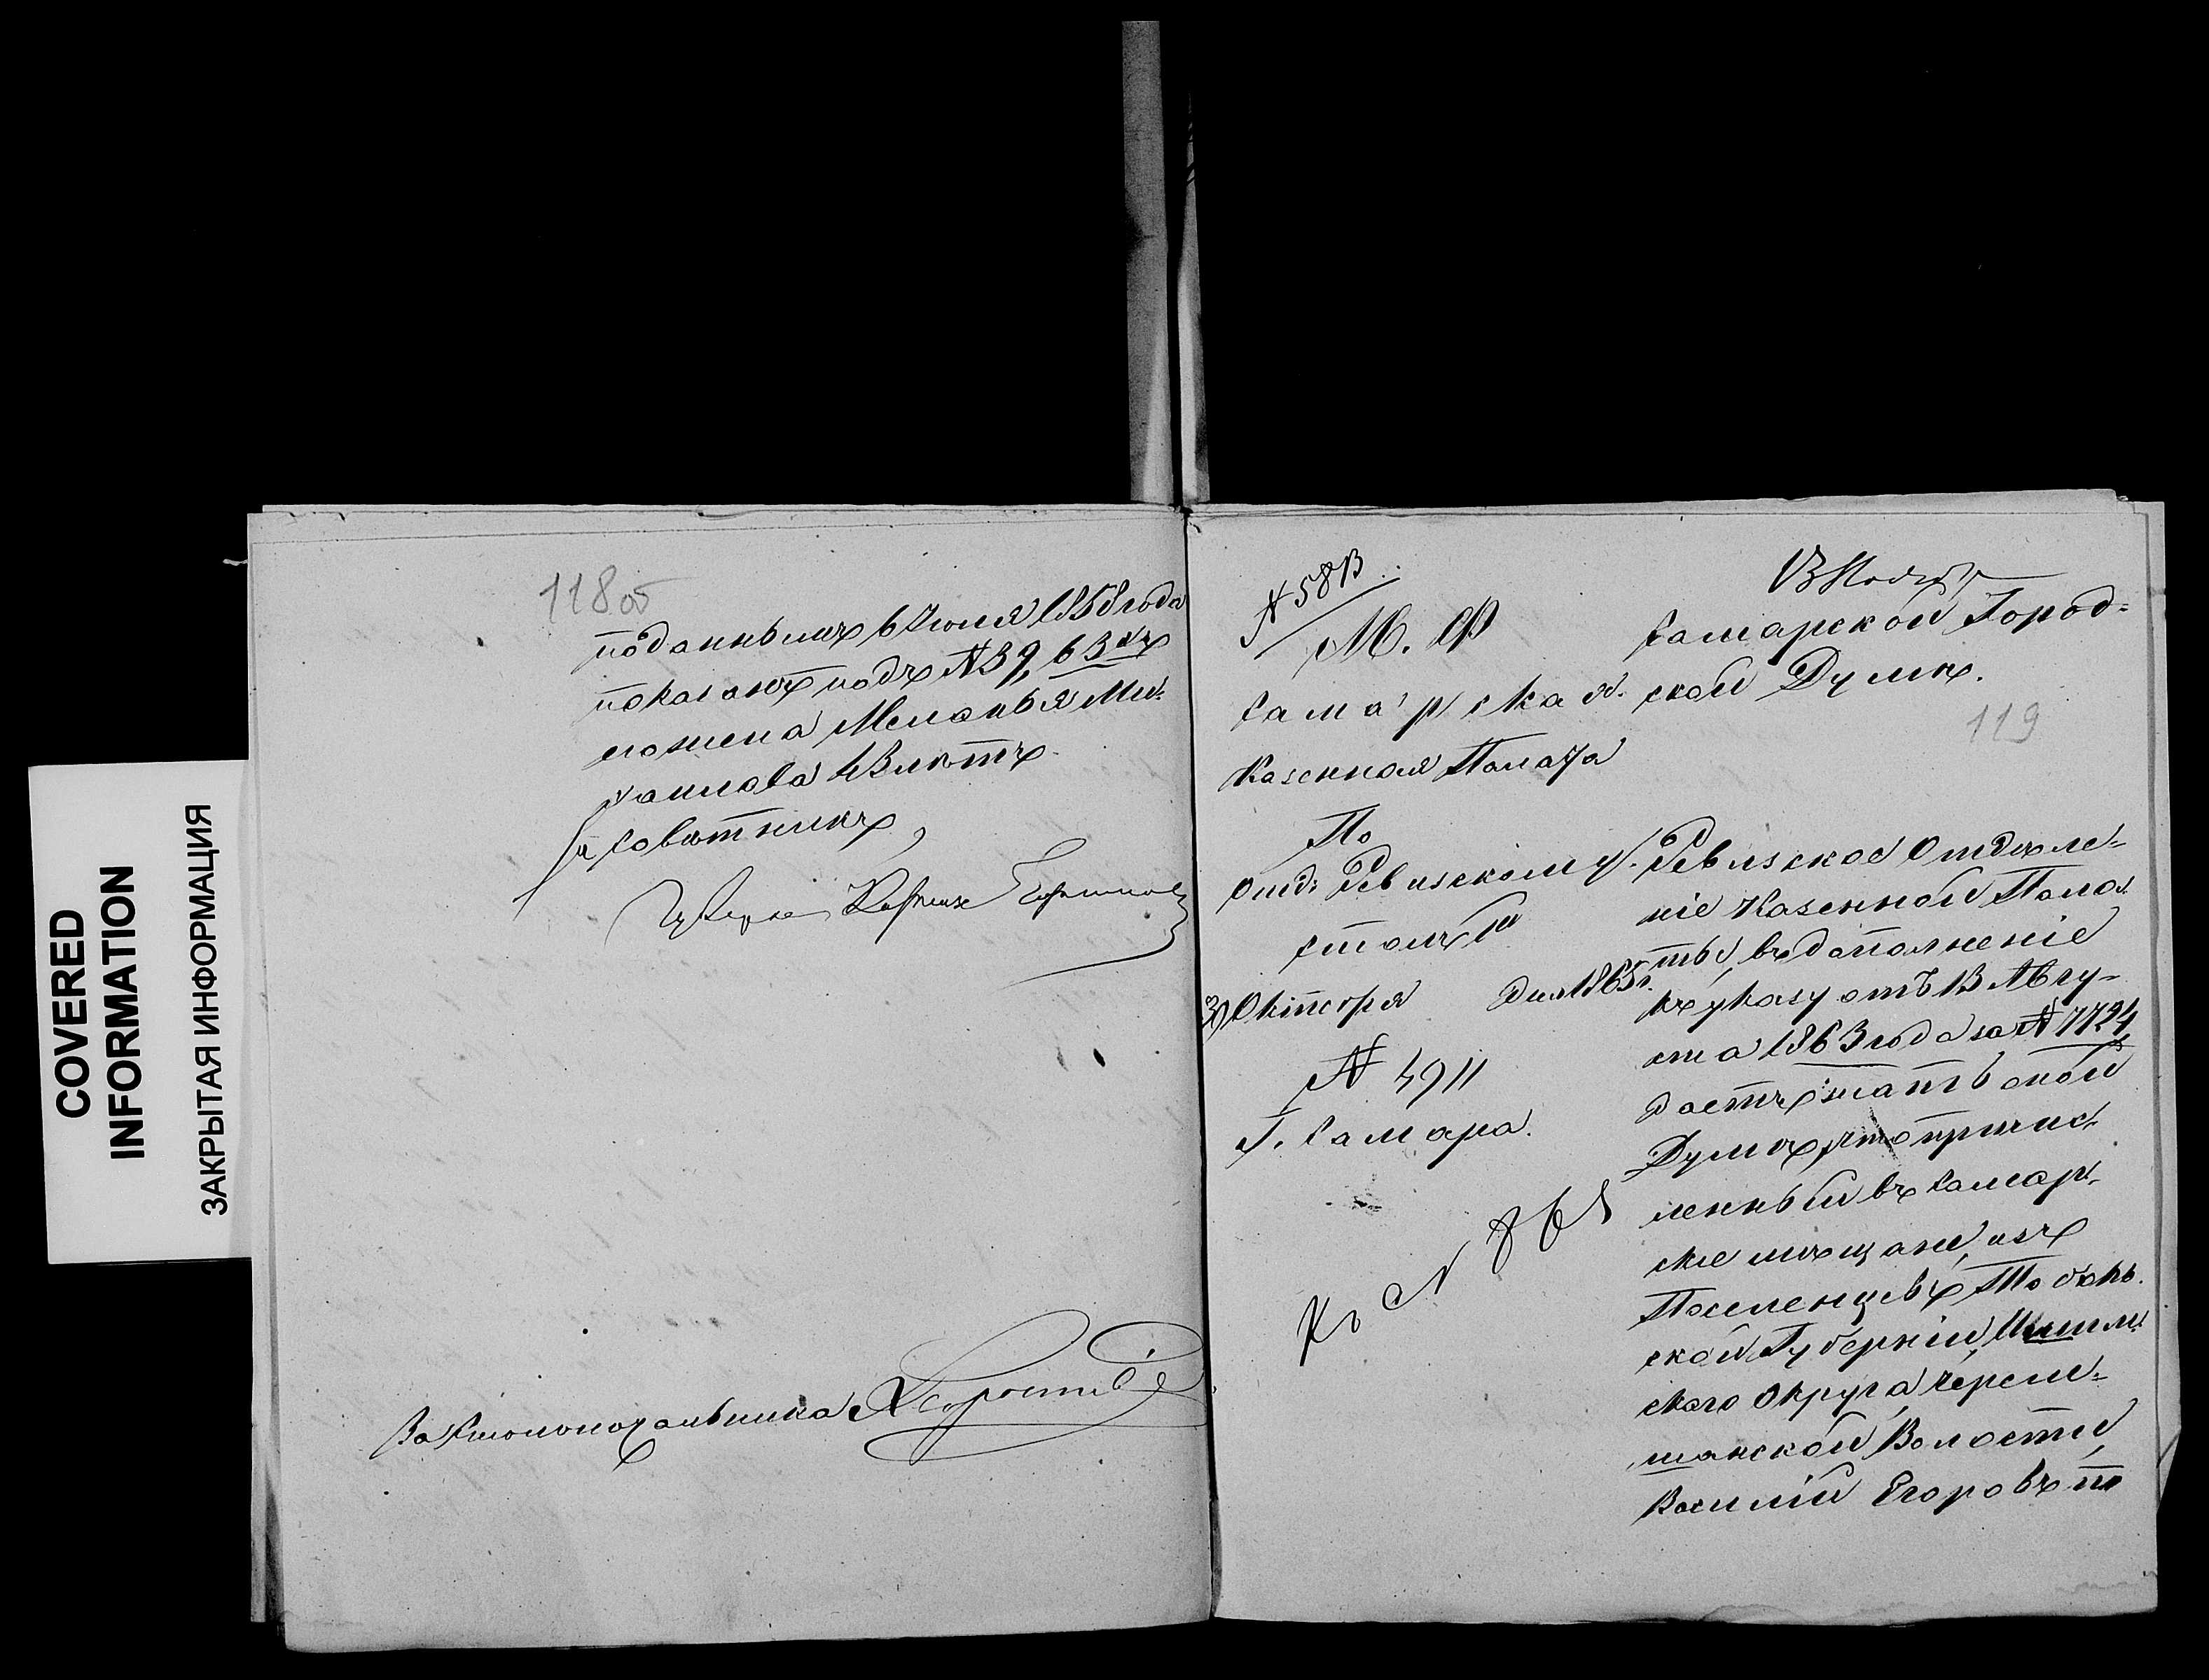 COVERED
INFORMATION
ЗАКРЫТАЯ ИНФОРМАЦИЯ
118 об
поданнымъ 6 Июля 1858 года
показанъ подъ № 39, 63 хъ
его жена Меланья Ми-
хаилова 43 лѣтъ
За Совѣтника,
За Столоначальника
№ 58
М. Ф
Самарская
Казенная Палата
По
Отд: Ревизскому
Столъ
30 Октября дня 1865 г.
№ 4911
Г. Самара.
Къ №
Самарской Город-
ской Думѣ.
119
Ревизское Отдѣле-
ніе Казенной Пала-
ты, въ дополненіе
къ указу отъ 13 Авгу-
ста 1863 года за № 7724,
даетъ знать оной
Думѣ, что причис-
ленный въ Самар-
скіе мѣщане, изъ
Поселенцевъ Тоболь-
ской Губерніи, Ишим-
скаго Округа, Череми-
шанской Волости,
Василій Егоровъ по